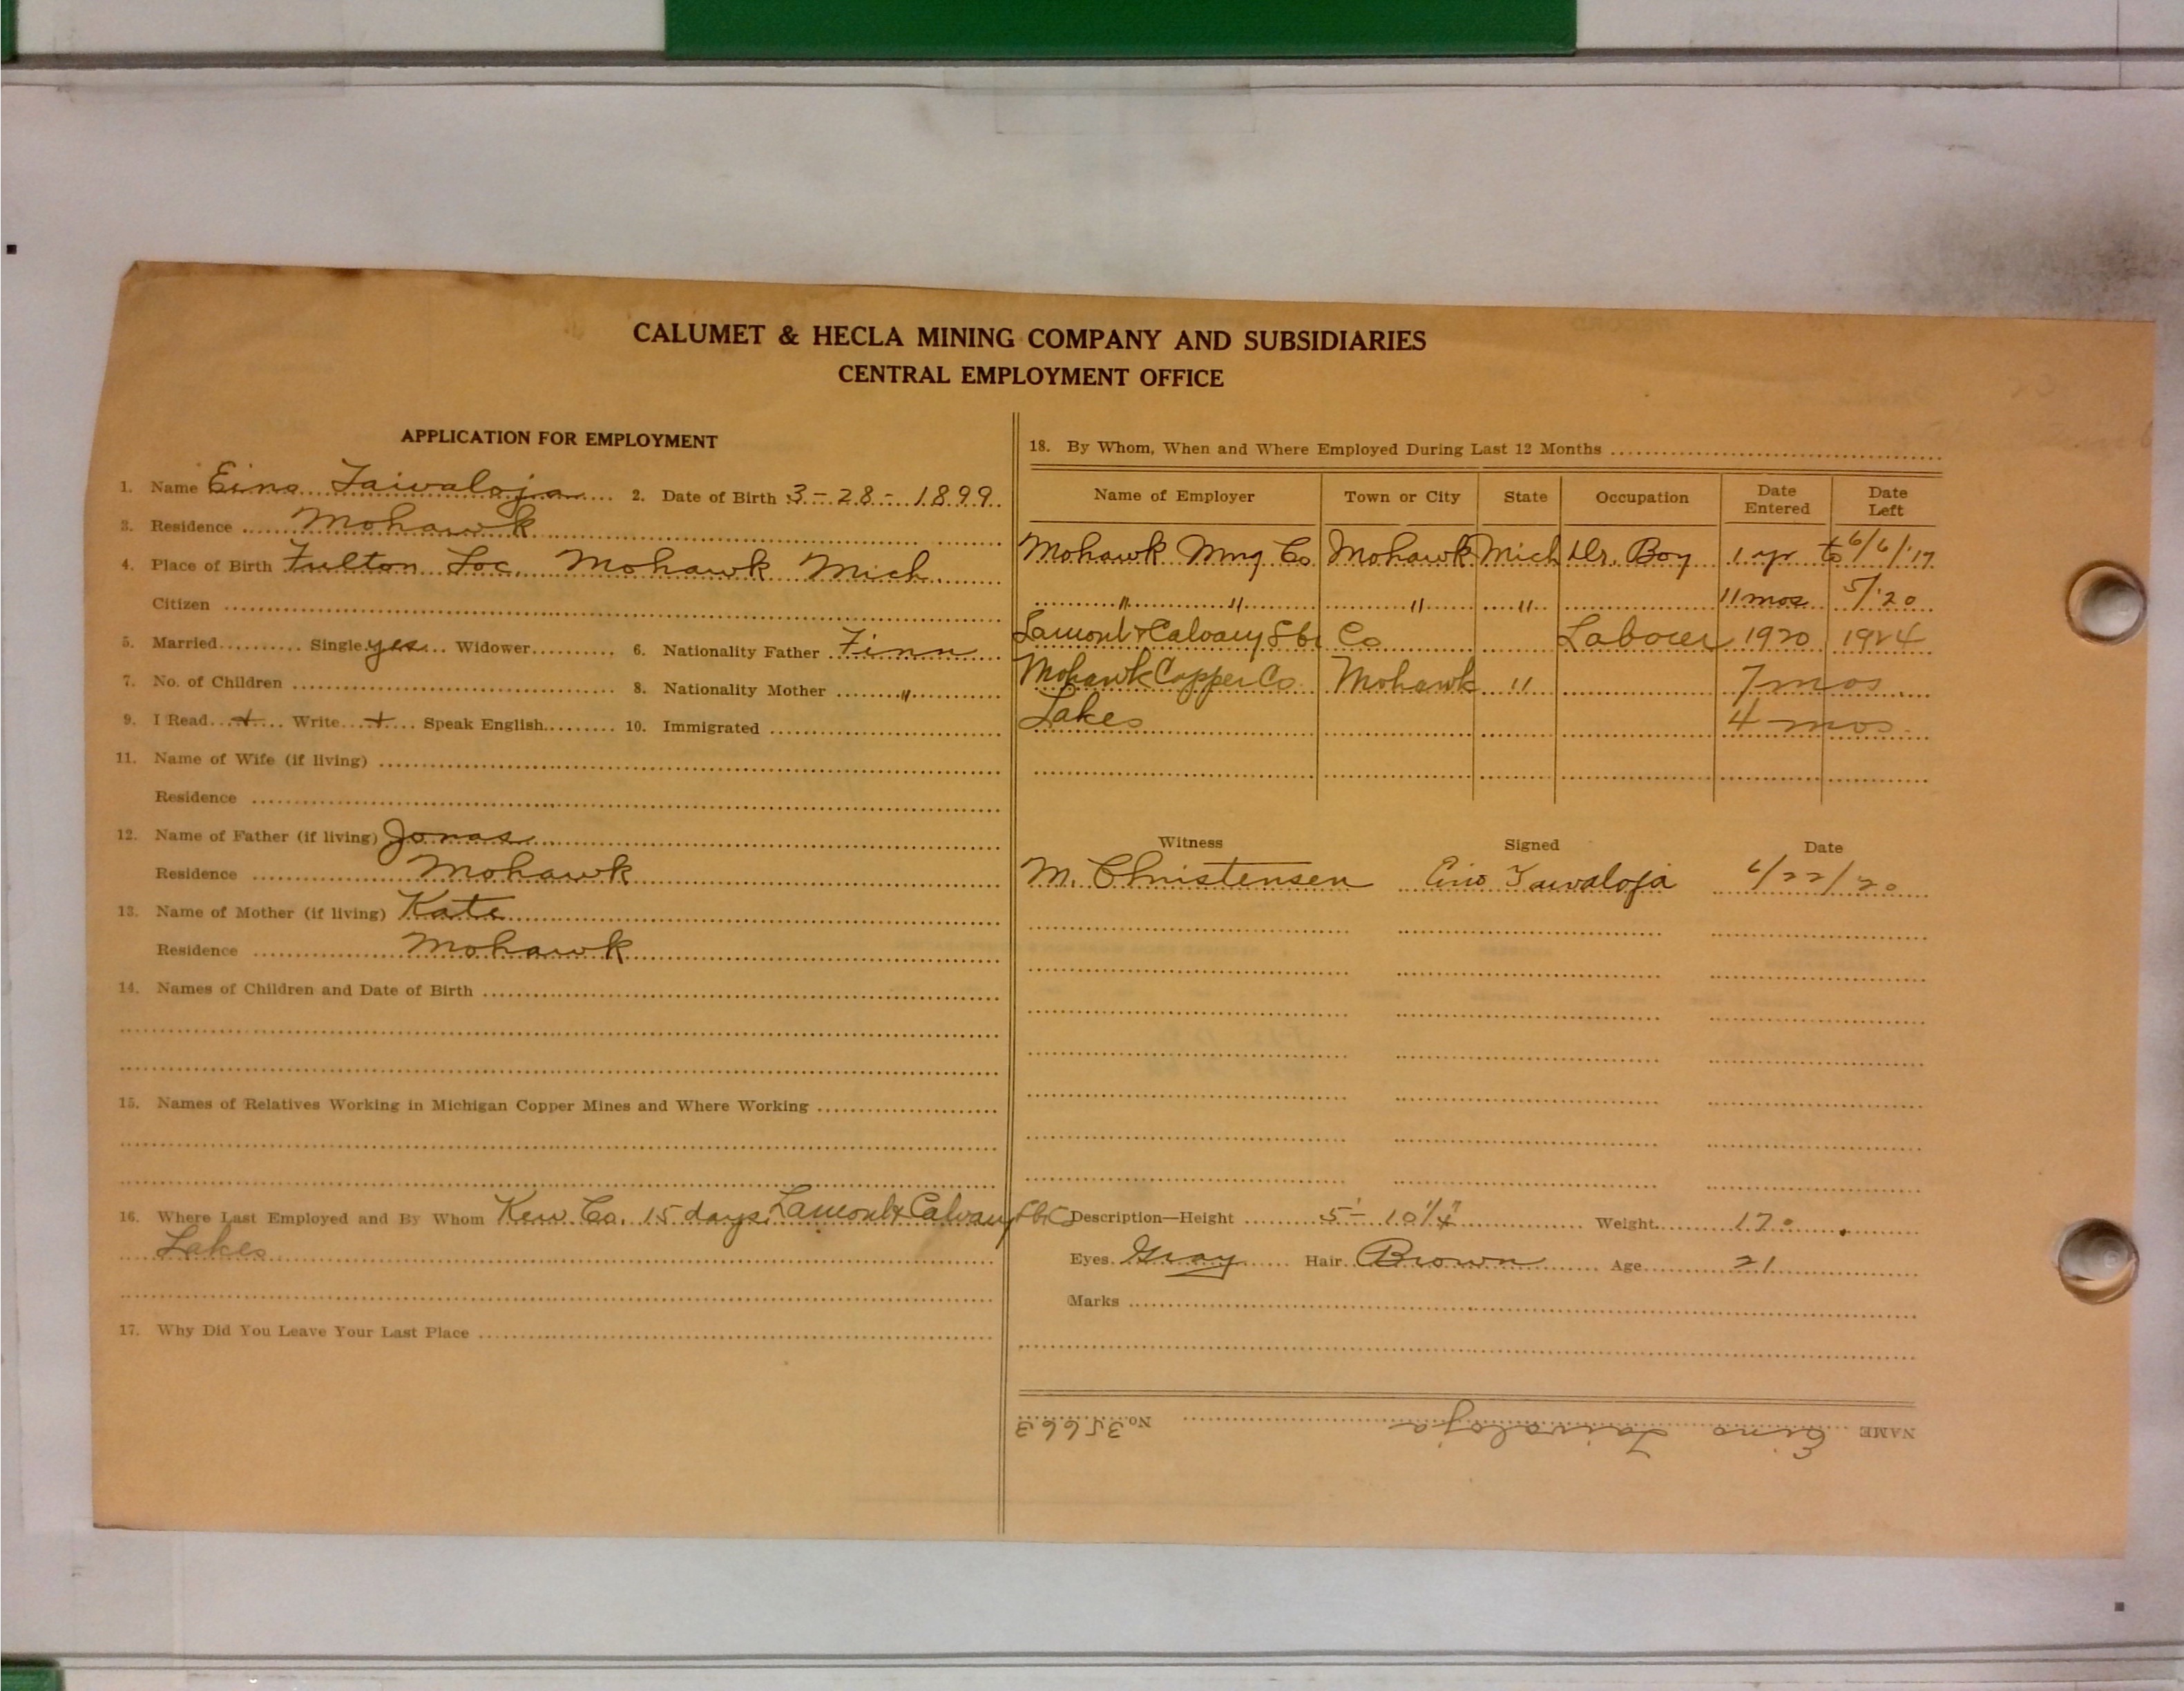 CALUMET & HECLA MINING COMPANY AND SUBSIDIARIES
CENTRAL EMPLOYMENT OFFICE
APPLICATION FOR EMPLOYMENT
1. Name Eino Taivaloja 2. Date of Birth 3-28-1899
3. Residence Mohawk
4. Place of Birth Fulton Loc. Mohawk Mich.
Citizen
5. Married Single yes Widower 6. Nationality Father Finn
7. No. of Children 8. Nationality Mother "
9. I Read + Write + Speak English 10. Immigrated
11. Name of Wife (if living)
Residence
12. Name of Father (if living) Jonas
Residence Mohawk
13. Name of Mother (if living) Kate
Residence Mohawk
14. Names of Children and Date of Birth
15. Names of Relatives Working in Michigan Copper Mines and Where Working
16. Where Last Employed and By Whom Kew. Co. 15 days. Lamont & Calvary
Lakes
17. Why Did You Leave Your Last Place
18. By Whom, When and Where Employed During Last 12 Months
Name of Employer Town or City State Occupation Date Entered Date Left
Mohawk Mng Co Mohawk Mich Dr. Boy 1 yr to 6/6/'17
" " " " 11 mos 5/'20
Lamont & Calvary Co Laborer 1920 1924
Mohawk Copper Co. Mohawk " 7 mos
Lakes 4 mos.
Witness Signed Date
M. Christensen Eino Taivaloja 6/22/20
Description—Height 5' 10 1/4" Weight 170
Eyes Gray Hair Brown Age 21
Marks
NAME Eino Taivaloja No. 35663